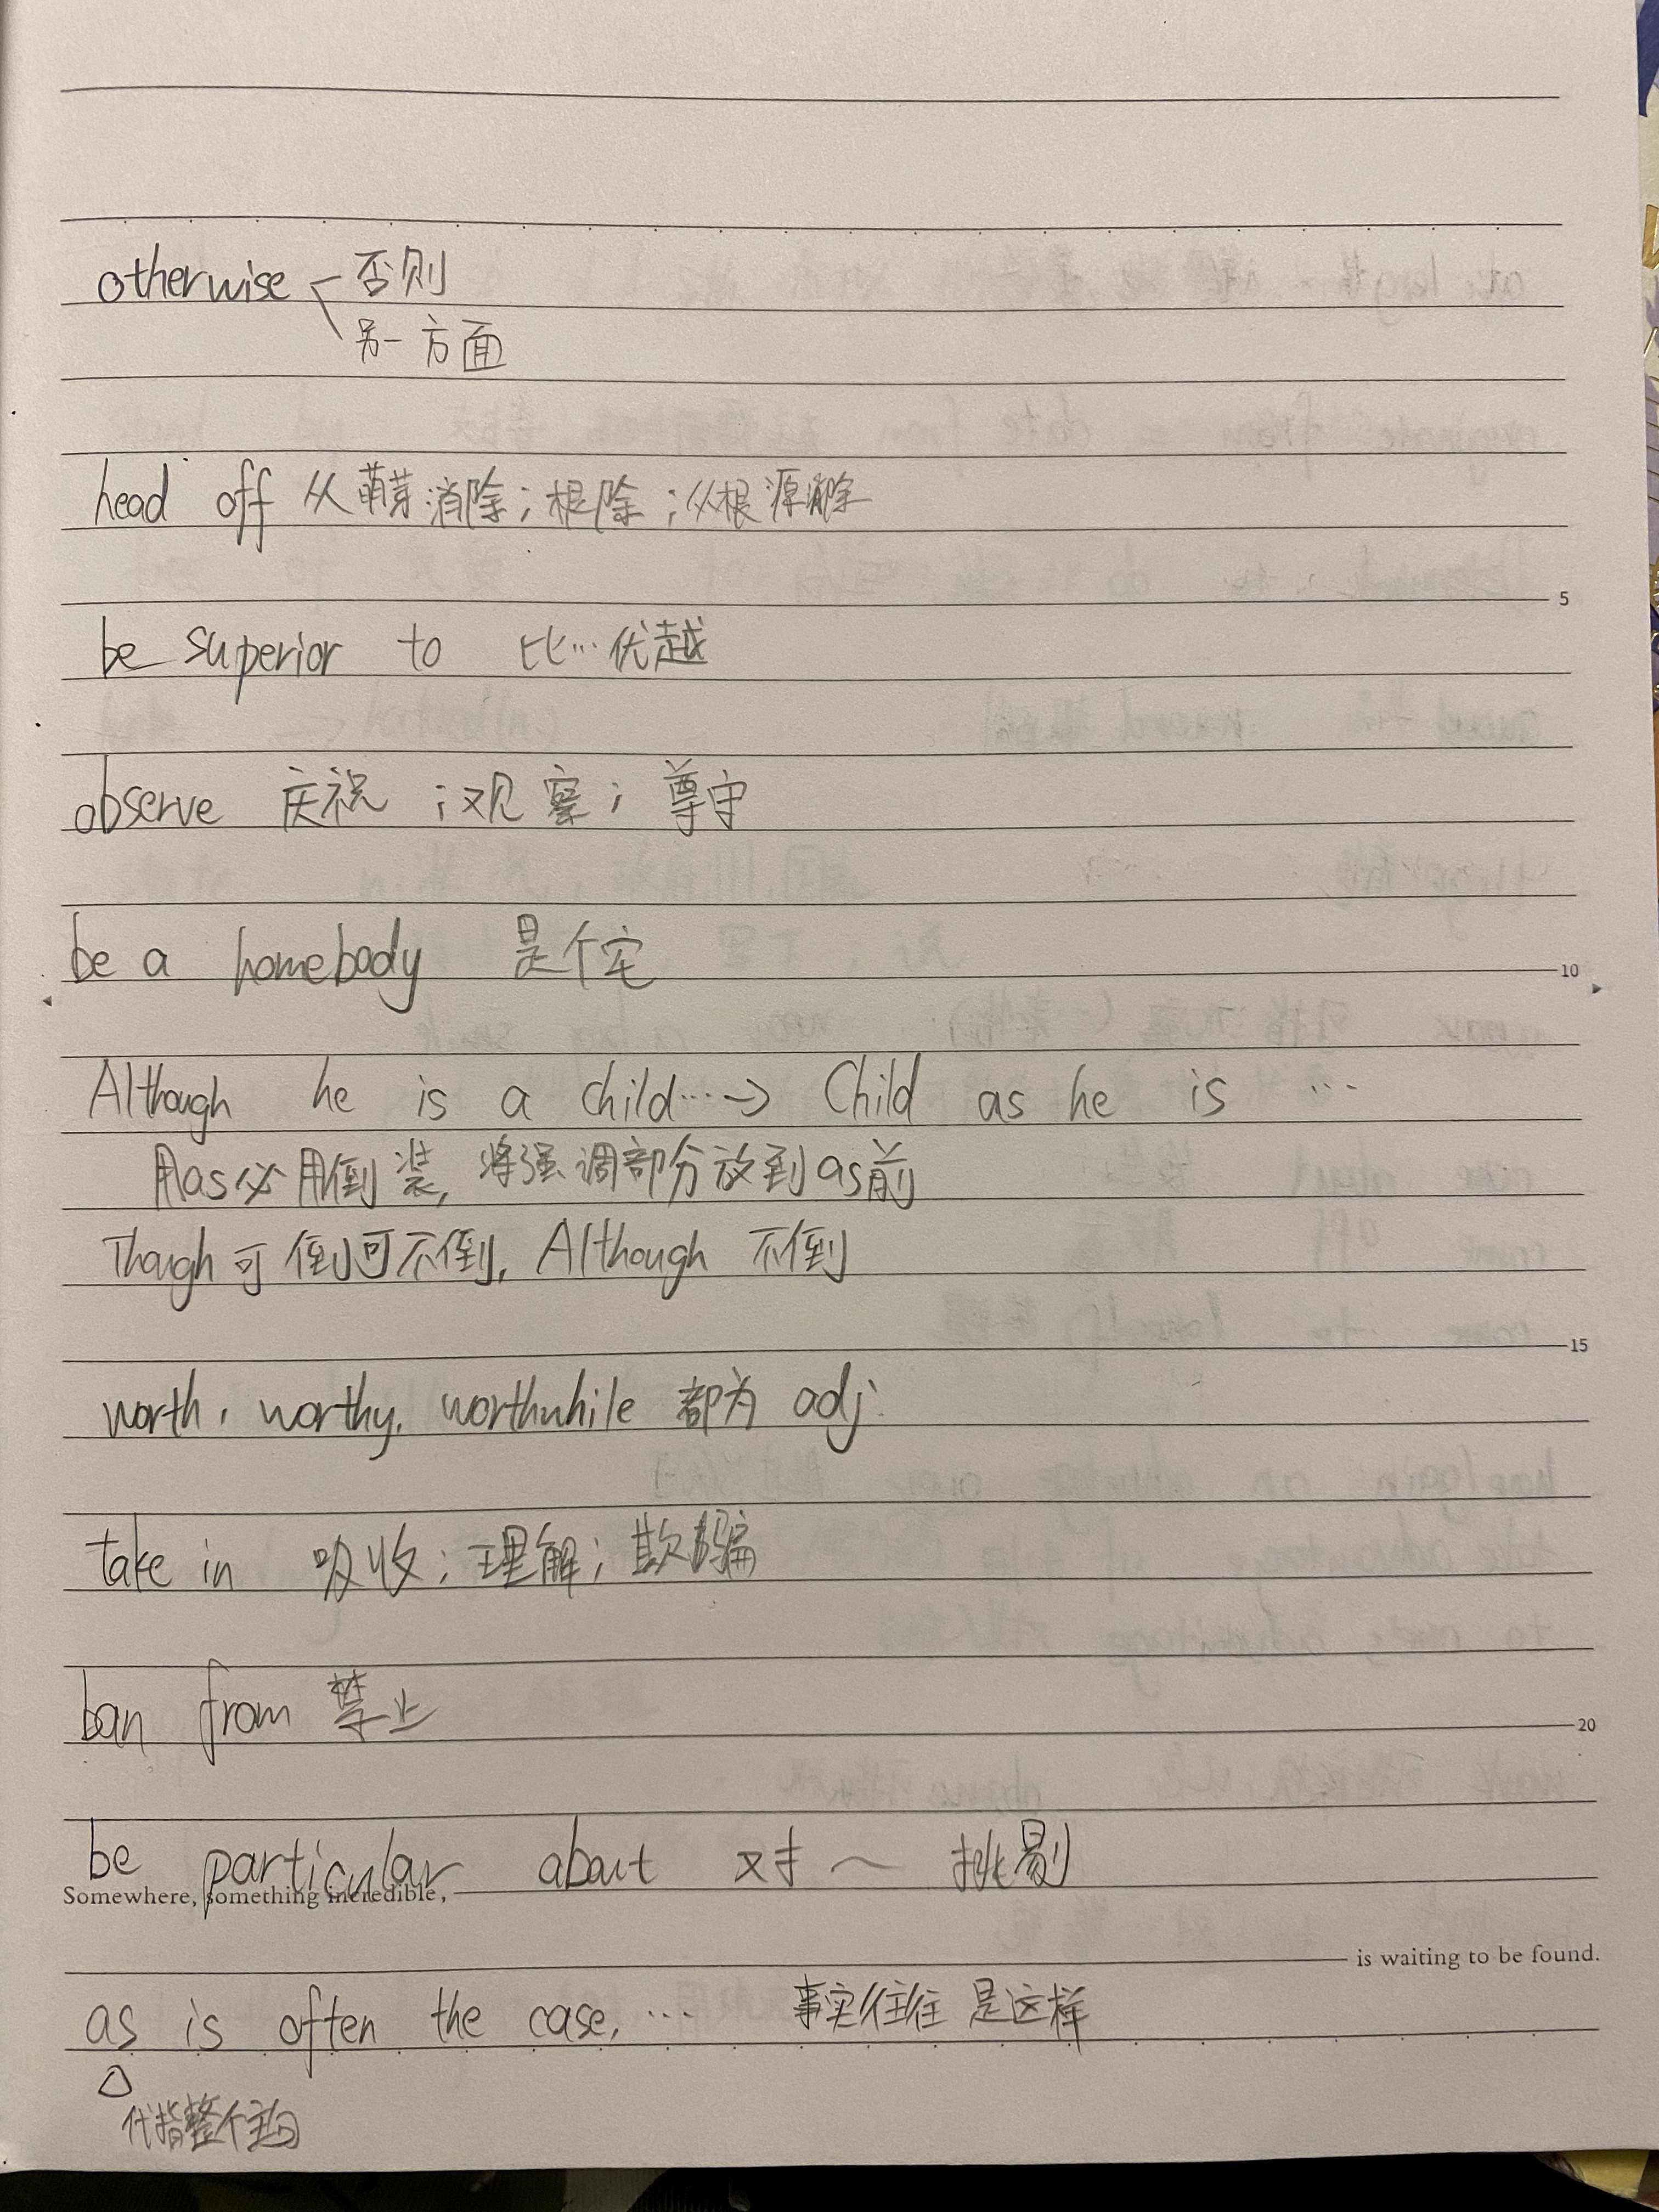 otherwise 否则
另一方面
head off 从萌芽消除；根除；从根源解
be superior to 比…优越
observe 庆祝；观察；遵守
be a homebody 是个宅
Although he is a child…→ Child as he is …
用as必用倒装，将强调部分放到as前
Though可倒可不倒，Although 不倒
worth, worthy, worthwhile 都为 adj.
take in 吸收；理解；欺骗
ban from 禁止
be particular about 对～挑剔
Somewhere, something incredible,
is waiting to be found.
as is often the case, … 事实往往是这样
代指整个主句
5
10
15
20